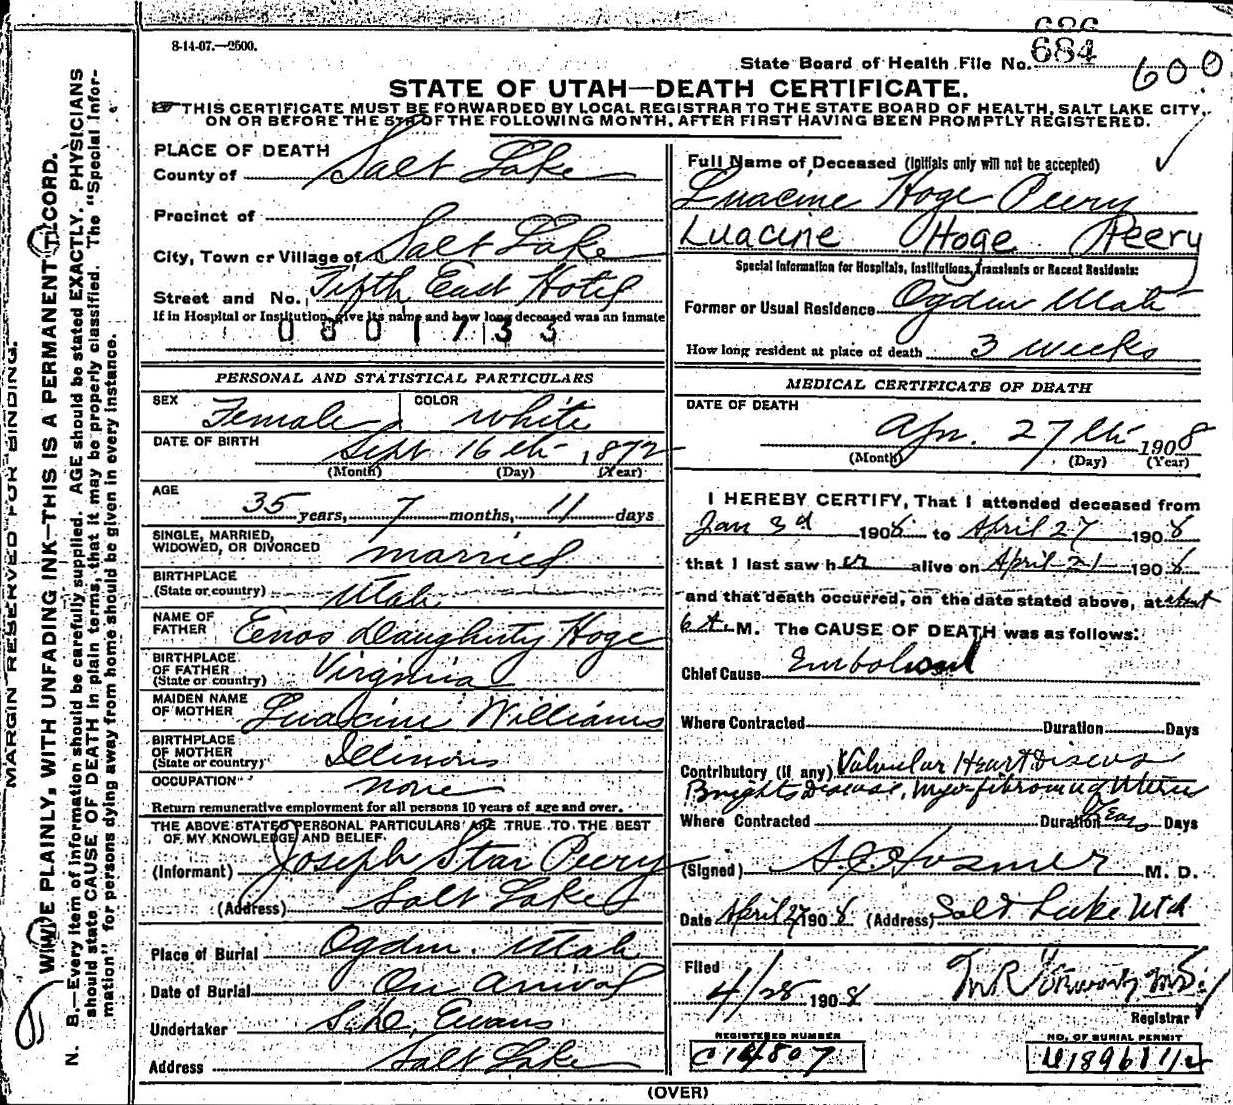 8-14-07.—2500.
686
684
State Board of Health File No.
600
STATE OF UTAH—DEATH CERTIFICATE.
THIS CERTIFICATE MUST BE FORWARDED BY LOCAL REGISTRAR TO THE STATE BOARD OF HEALTH, SALT LAKE CITY,
ON OR BEFORE THE 5TH OF THE FOLLOWING MONTH, AFTER FIRST HAVING BEEN PROMPTLY REGISTERED.
MARGIN RESERVED FOR BINDING.
WRITE PLAINLY, WITH UNFADING INK—THIS IS A PERMANENT RECORD.
N. B.—Every item of information should be carefully supplied. AGE should be stated EXACTLY. PHYSICIANS
should state CAUSE OF DEATH in plain terms, that it may be properly classified. The "Special Infor-
mation" for persons dying away from home should be given in every instance.
PLACE OF DEATH
County of Salt Lake
Precinct of
City, Town or Village of Salt Lake
Street and No. Fifth East Hotel
If in Hospital or Institution, give its name and how long deceased was an inmate
0801733
PERSONAL AND STATISTICAL PARTICULARS
SEX Female COLOR White
DATE OF BIRTH Sept 16th 1872
(Month) (Day) (Year)
AGE
35 years, 7 months, 11 days
SINGLE, MARRIED,
WIDOWED, OR DIVORCED married
BIRTHPLACE
(State or country) Utah
NAME OF
FATHER Eenos Daugherty Hoge
BIRTHPLACE
OF FATHER
(State or country) Virginia
MAIDEN NAME
OF MOTHER Luacine Williams
BIRTHPLACE
OF MOTHER
(State or country) Illinois
OCCUPATION none
Return remunerative employment for all persons 10 years of age and over.
THE ABOVE STATED PERSONAL PARTICULARS ARE TRUE TO THE BEST
OF MY KNOWLEDGE AND BELIEF.
(Informant) Joseph Star Peery
(Address) Salt Lake
Place of Burial Ogden Utah
Date of Burial On Arrival
Undertaker Evans
Address Salt Lake
Full Name of Deceased (Initials only will not be accepted)
Luacine Hoge Peery
Luacine Hoge Peery
Special Information for Hospitals, Institutions, Transients or Recent Residents:
Former or Usual Residence Ogden Utah
How long resident at place of death 3 weeks
MEDICAL CERTIFICATE OF DEATH
DATE OF DEATH
Apr. 27th 1908
(Month) (Day) (Year)
I HEREBY CERTIFY, That I attended deceased from
Jan 3d 1908 to April 27 1908
that I last saw her alive on April 21 1908
and that death occurred, on the date stated above, at about
6 A. M. The CAUSE OF DEATH was as follows:
Chief Cause Embolism
Where Contracted Duration Days
Contributory (if any) Valvular Heart Disease
Brights Disease, Myo-fibroma of Uterus
Where Contracted Duration Years Days
(Signed) Hosmer M. D.
Date April 27 1908 (Address) Salt Lake Utah
Filed
4/28 1908
Registrar
REGISTERED NUMBER
C 14807
NO. OF BURIAL PERMIT
(OVER)